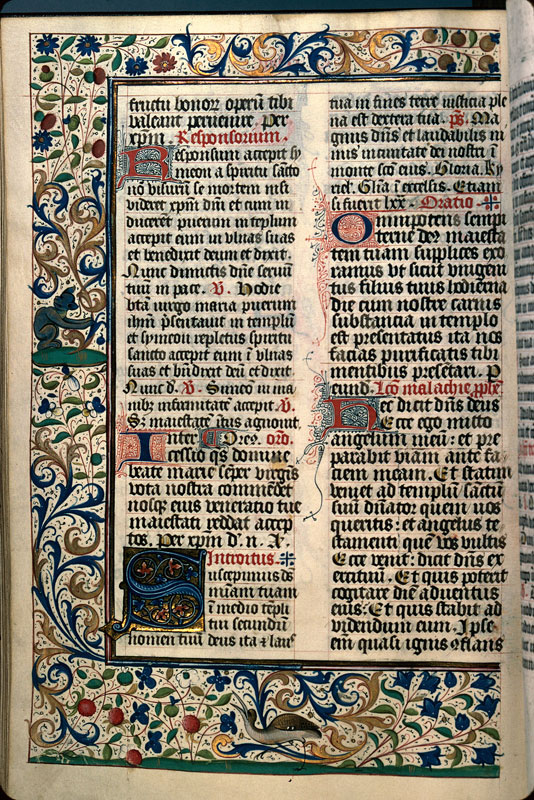 fructu bonoꝝ operū tibi
valeant peruenire. Per
xpm. Responsorium.
Responsum accepit sy
meon a spiritu sācto
nō visurū se mortem nisi
videret xpm dm̄ et cum in
ducerēt puerum in teplum
accepit eum in vlnas suas
et benedixit deum et dixit.
Nunc dimictis dn̄e seruū
tuū in pace. V. Hodie
btā virgo maria puerum
ihm̄ p̄sentauit in templū
et symeon repletus spiritu
sancto accepit eum ī vlnas
suas et bn̄dixit dm̄ et dixit
Nunc d. V. Simeō in ma
nibꝫ infirmitatē accepit. V.
S; maiestatē
Inter ord.
cessio qs domine
beate marie sēper virgīs
vota nostra commēdet
nosqꝫ eius veneratio tue
maiestati reddat accep
tos. Per xpm d. n. A.
Introitus.
Suscepimus ds
miām tuam
ī medio tēpli
tui secundū
nomen tuū deus ita ⁊ laus
tua in fines terre iusticia ple
na est dextera tua. ps. Ma
gnus dn̄s et laudabilis ni
mis in ciuitate dei nostri ī
monte scō eius. Gloria. Ky
riel. Glīa ī excelsis. Et iam
si fuerit lxx. Oratio
Omnipotens sempi
terne deꝰ maiesta
tem tuam supplices exo
ramus vt sicut vnigeni
tus filius tuus hodierna
die cum nostre carnis
substantia in templo
est presentatus ita nos
facias purificatis tibi
mentibus presētari. P
eund. Lcō malachie pphē.
Hec dicit dn̄s deus
Ecce ego micto
angelum meū: et pre
parabit viam ante fa
ciem meam. Et statim
veniet ad templū sāctū
suū dn̄ator quem uos
queritis: et angelus te
stamenti quē vos vultis
Ecce venit: dicit dn̄s ex
ercituū. Et quis poterit
cogitare diē aduentus
eius: Et quis stabit ad
videndum eum. Ipse
eīm quasi ignis ꝯflans